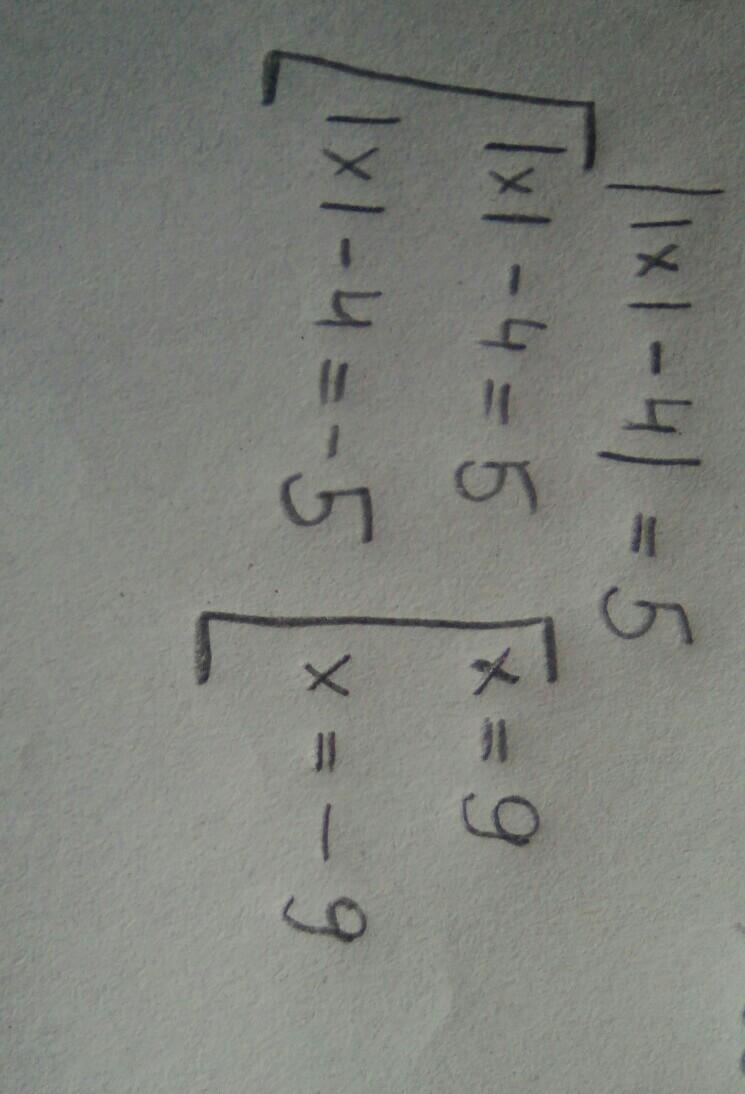 ||x|-4| = 5
|x|-4=5
|x|-4=-5
x=9
x=-9